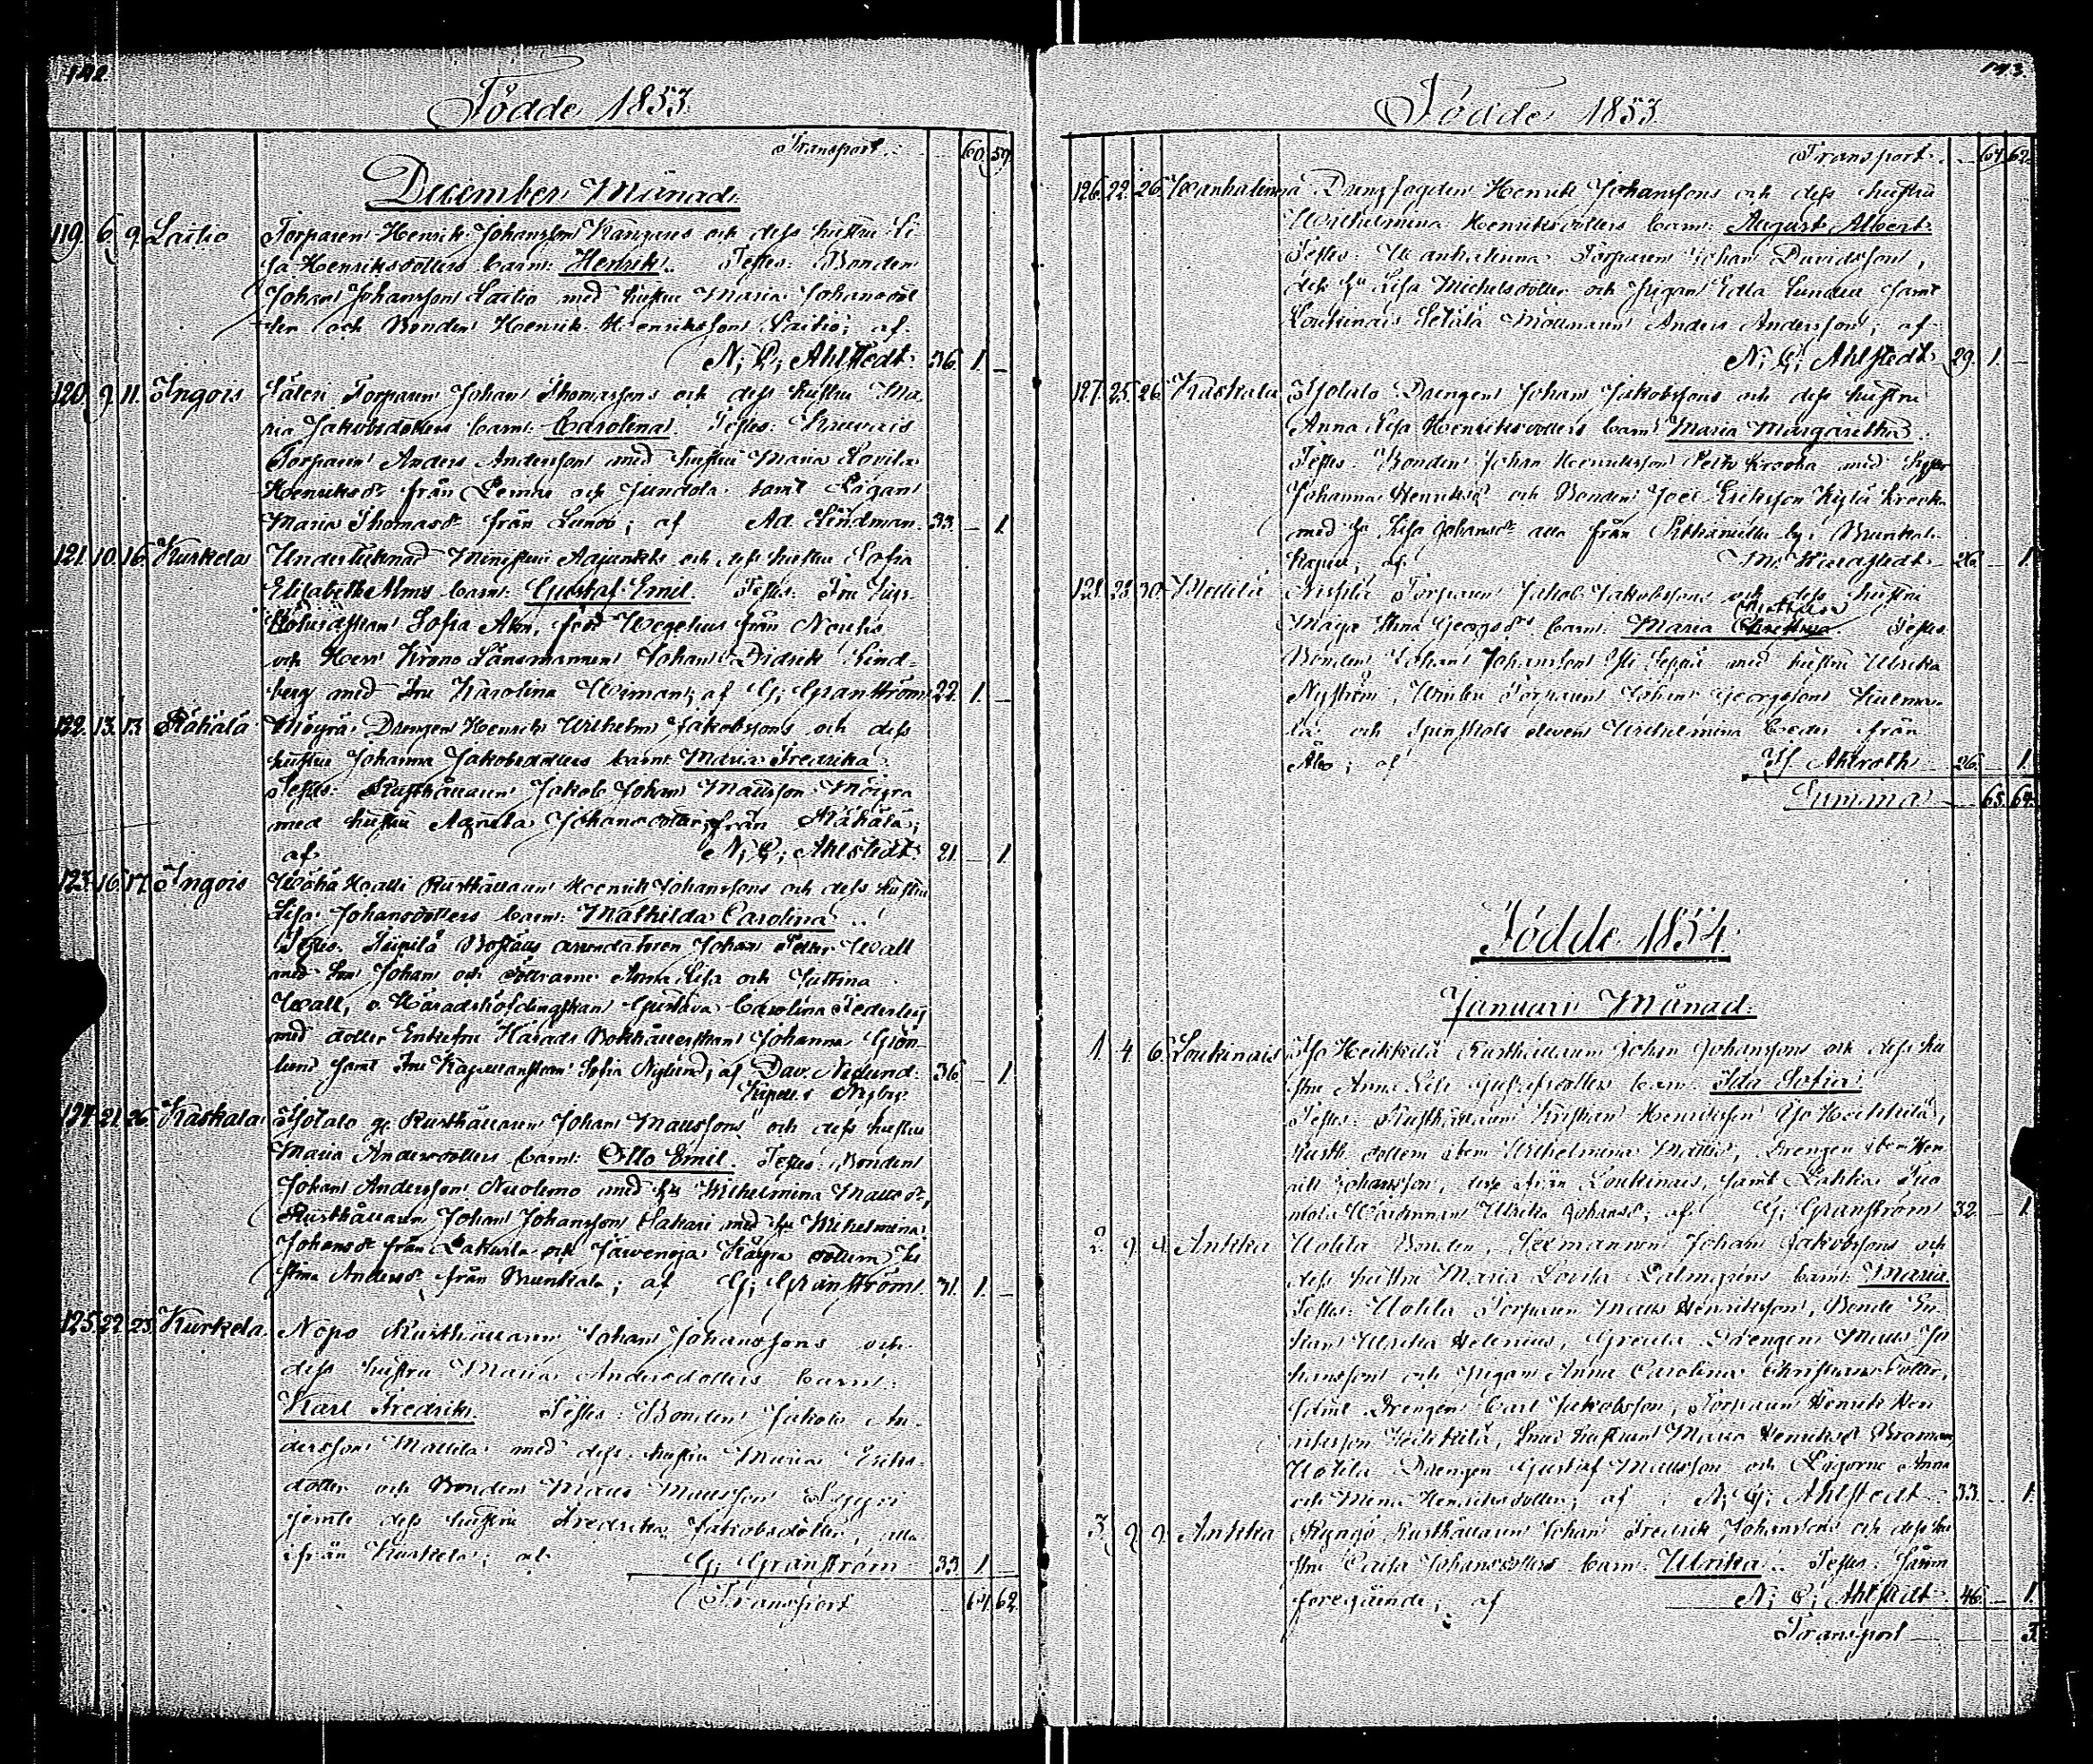 142.
Födde 1853.
Transport. 60. 59.
December Månad.
119. 6. 9. Laitio Torparen Henrik Johansson Kangares och dess hustru Li-
sa Henriksdotters barn: Henrik. Testes: Bonden
Johan Johansson Laitio med hustru Maria Johansdot-
ter och Bonden Henrik Henriksson Laitio; af
N; G; Ahlstedt. 36. 1. –
120. 9. 11. Ingois Säteri Torparen Johan Thomassons och dess hustru Ma-
ria Jakobsdotters barn: Carolina. Testes:
Torparen Anders Andersson med hustru Maria Lovisa
Henriksdr från Lemu och Jundola samt Pigan
Maria Thomasdr från Lundo; af Ad. Lindman. 33. – 1.
121. 10. 16. Kurkela Undertecknad Ministerii Adjunkts och dess hustru Sofia
Elisabeth Alms barn: Gustaf Emil. Testes: Fru
Sofia Alm, född Wegelius från Nousis
och Herr Krono Länsmannen Johan Didrik Lind-
berg med Fru Karolina Weiman; af G; Granström 22. 1. –
122. 13. 13. Rähälä Möyrä Drengen Henrik Wilhelm Jakobssons och dess
hustru Johanna Jakobsdotters barn: Maria Fredrika.
Testes: Rusthållaren Jakob Johan Mattsson Möyrä
med hustru Agneta Johansdotter, från Rähälä;
af N; G; Ahlstedt. 21. – 1.
123. 16. 17. Ingois Wähä Healli Rusthållaren Henrik Johanssons och dess hustru
Lisa Johansdotters barn: Mathilda Carolina.
Testes: Boställs arrendatoren Johan Petter Wall
med son Johan och döttrarne Anna Lisa och Justina
Wall, v. Häradshöfdingskan Gustava Carolina Federley
med dotter Enkefru Härads Bokhållerskan Johanna Grön-
lund samt Fru Kapellanskan Sofia Nylund; af Dav. Nylund. 36. – 1.
Kapell. i Nyby.
124. 21. 26. Kaskala Isotalo gl. Rusthållaren Johan Mattssons och dess hustru
Maria Andersdotters barn: Otto Emil. Testes: Bonden
Johan Andersson Nuolemo med hu Wilhelmina Mattsdr,
Rusthållaren Johan Johansson Sakari med hu Wilhelmina
Johansdr från och Käyrä dottern
stina Andersdr, från Brunkala; af G; Granström. 31. 1. –
125. 22. 23. Kurkela. Nopo Rusthållaren Johan Johanssons och
dess hustru Maria Andersdotters barn:
Karl Fredrik. Testes: Bonden Jakob An-
dersson Mattila med dess hustru Maria Eriks-
dotter och Bonden Matts Mattsson
jemte dess hustru Fredrika Jakobsdotter, alla
ifrån Kurkela; af G; Granström 33. 1. –
Transport 64. 62.
143.
Födde 1853
Transport. 64. 62.
126. 22. 26. Wanhalinna Drengfogden Henrik Johanssons och dess hustru
Wilhelmina Henriksdotters barn: August Albert.
Testes: Wanhalinna Torparen Johan Davidsson,
dess hu Lisa Michelsdotter och Pigan Edla Lunden samt
Loukinais Setälä Möllnaren Anders Andersson; af
N; G; Ahlstedt. 29. 1. –
127. 25. 26. Kaskala Isotalo Drengen Johan Jakobssons och dess hustru
Anna Lisa Henriksdotters barn: Maria Margaretha.
Testes: Bonden Johan Henriksson med
Johanna Henriksdr och Bonden Joel Eriksson
med hu Lisa Johansdr alla från by i Brunkala
Kapell, af 26. – 1.
128. 28. 30. Torparen Jakob Jakobssons och dess hustru
Maja Stina Georgsdrs barn: Maria Testes:
Bonden Johan Johansson Seppä med hustru Ulrika
Nyström, Torparen Johan Georgsson
och Spinskols eleven Wilhelmina från
Åbo; af Ahlroth 26. – 1.
Summa 65. 64.
Födde 1854.
Januari Månad.
1. 4. 6. Loukinais Iso Heikkilä Rusthållaren Johan Johanssons och dess hu-
stru Anna barn: Ida Sofia.
Testes: Rusthållaren Kristian Henriksson Iso Heikkilä,
Rusth. dottern Wilhelmina Drengen Hen-
rik Johansson, från Loukinais, samt
Ulrika Johansdr; af G; Granström 32. – 1.
2. 9. 9. Ankka Uotila Bonden, Sexmannen Johan Jakobssons och
dess hustru Maria Lovisa Palmgrens barn: Maria.
Testes: Uotila Torparen Matts Henriksson, Bonde En-
kan Ulrika Helenius, Drengen Matts Jo-
hansson och Pigan Anna Carolina Christiansdotter,
samt Drengen Carl Jakobsson, Torparen Henrik Hen-
riksson Heikkilä, hustrun Maria Henriksdr
Uotila Drengen Gustaf Mattsson och Pigorne Anna
och Mina Henriksdotter; af N; G; Ahlstedt. 33. – 1.
3. 9. 9. Ankka Rusthållaren Johan Fredrik Johanssons och dess hu-
stru Caisa Johansdotters barn: Ulrika. Testes: samm
föregående; af N; G; Ahlstedt. 46. – 1.
Transport 3.